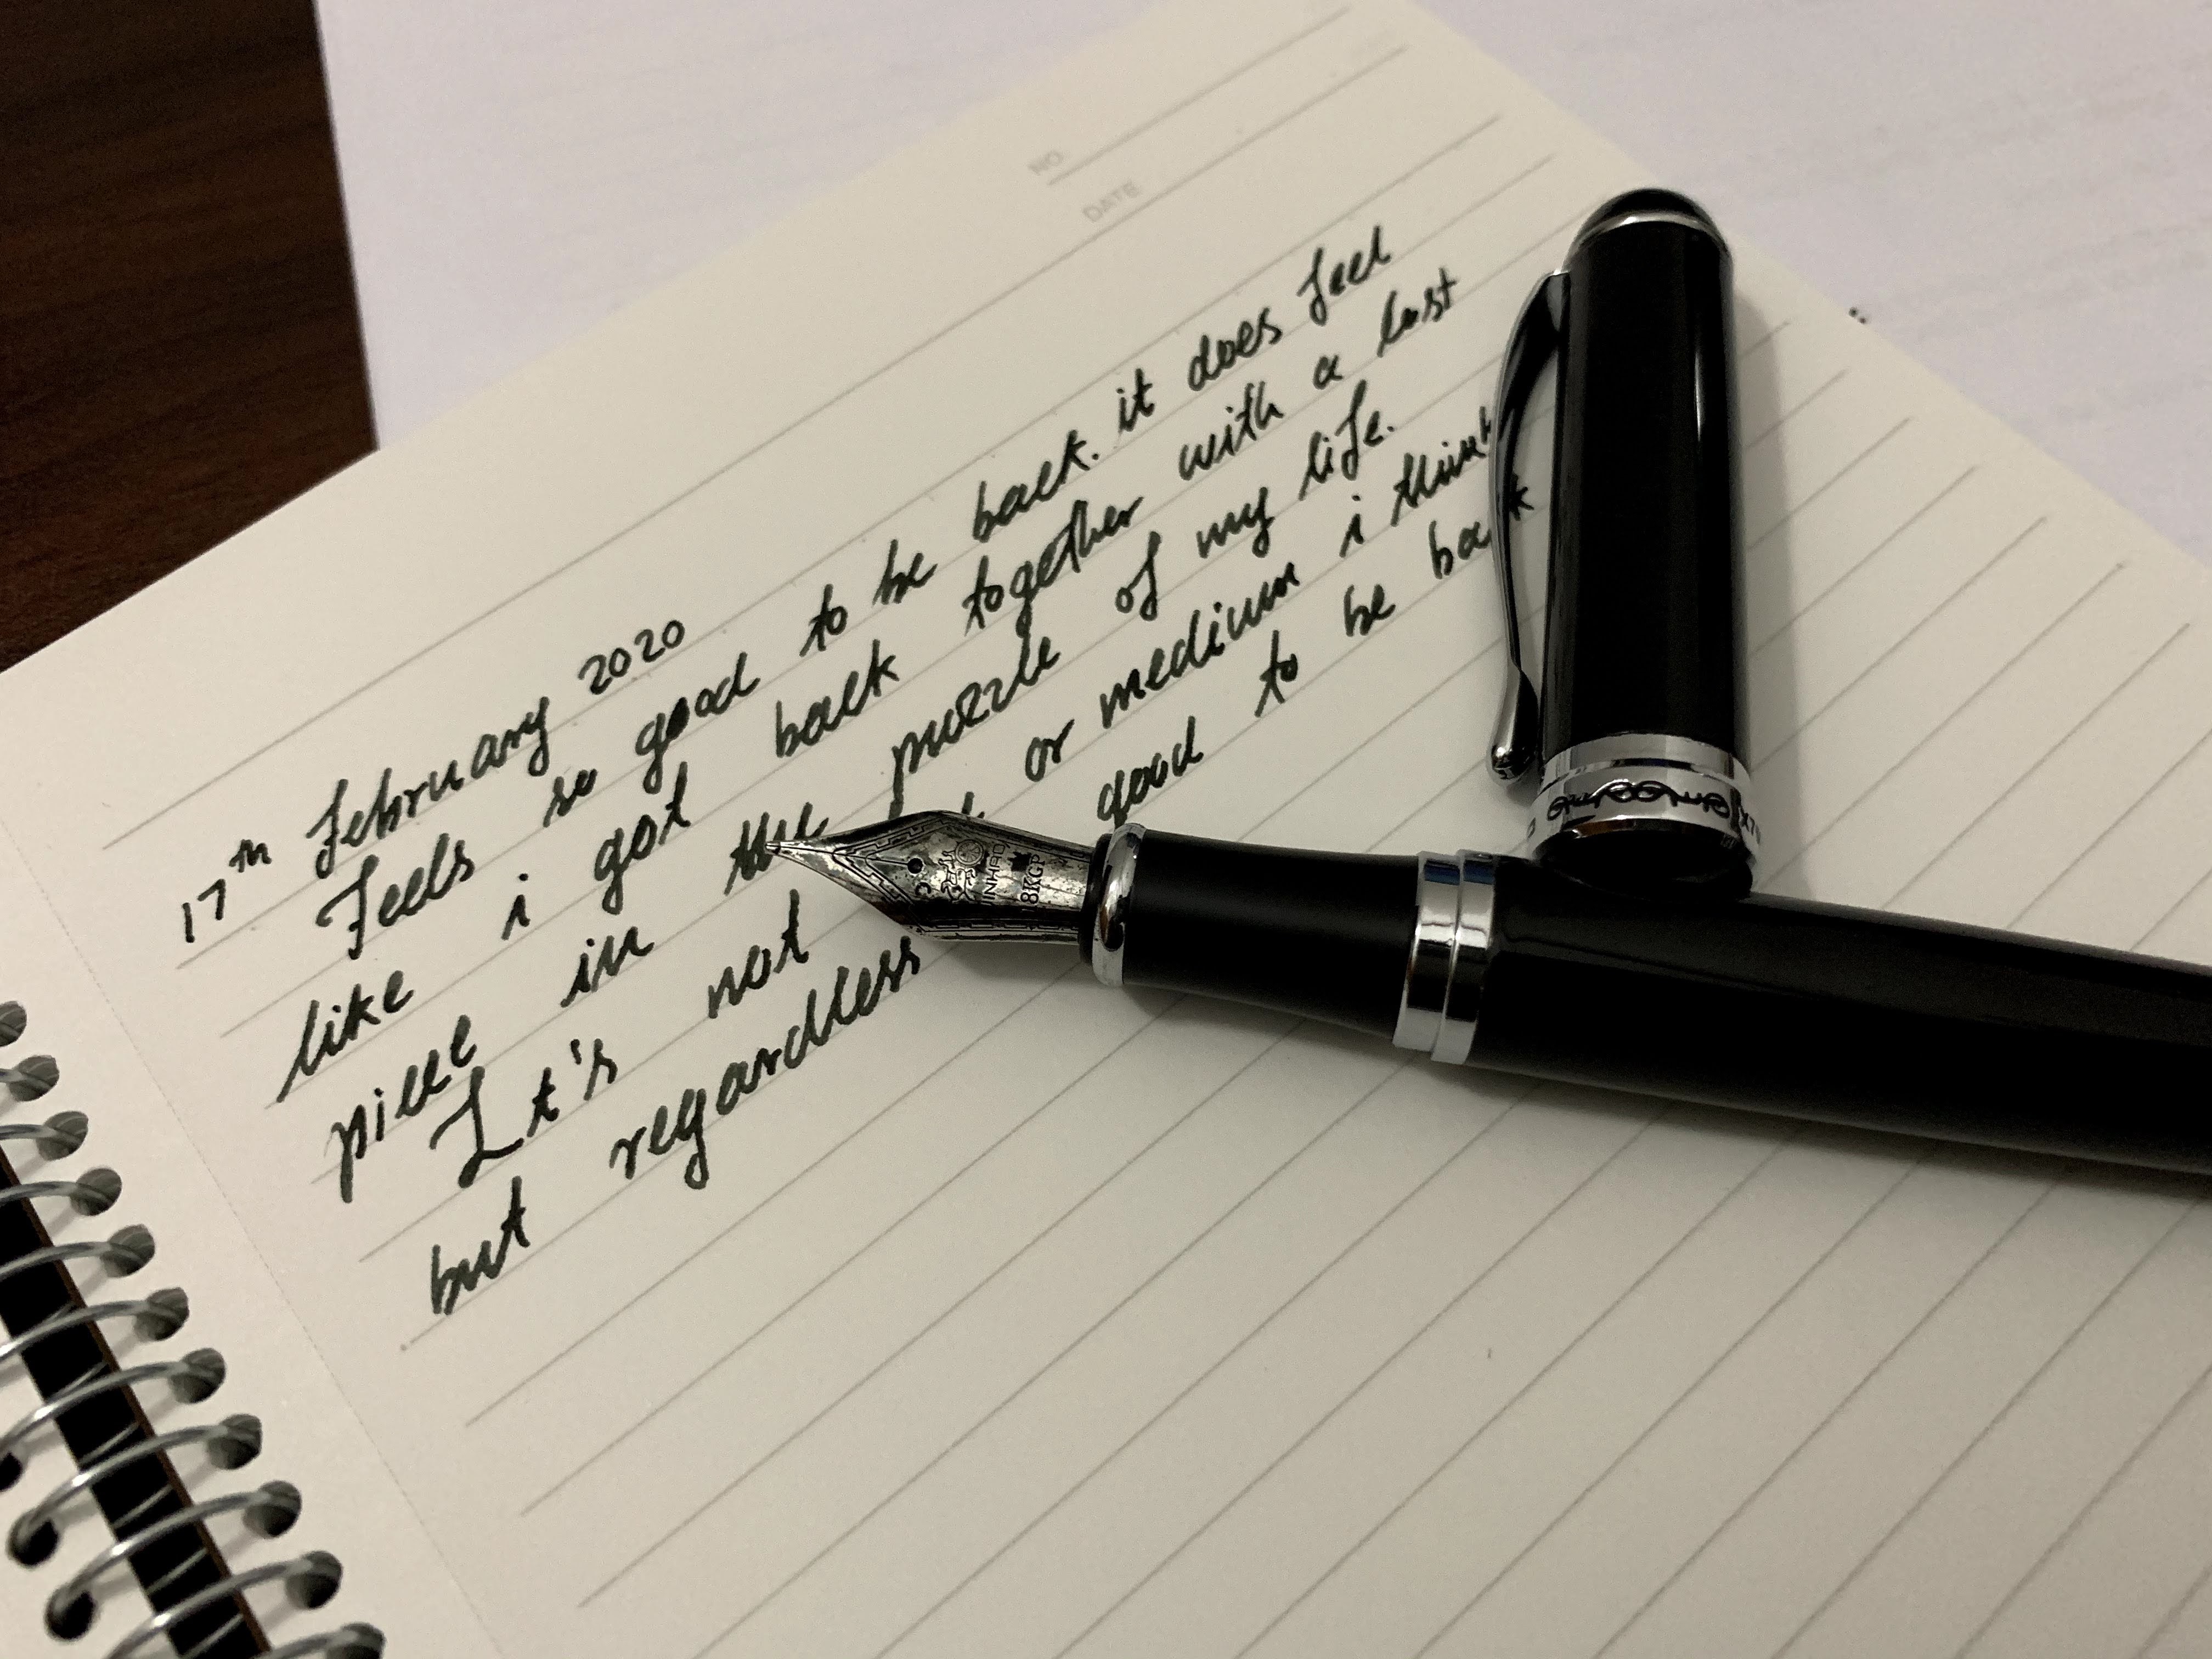 NO.
DATE
17th February 2020
Feels so good to be back. it does feel
like i got back together with a lost
piece in the puzzle of my life.
It's not or medium i think
but regardless good to be back
JINHAO
18KGP